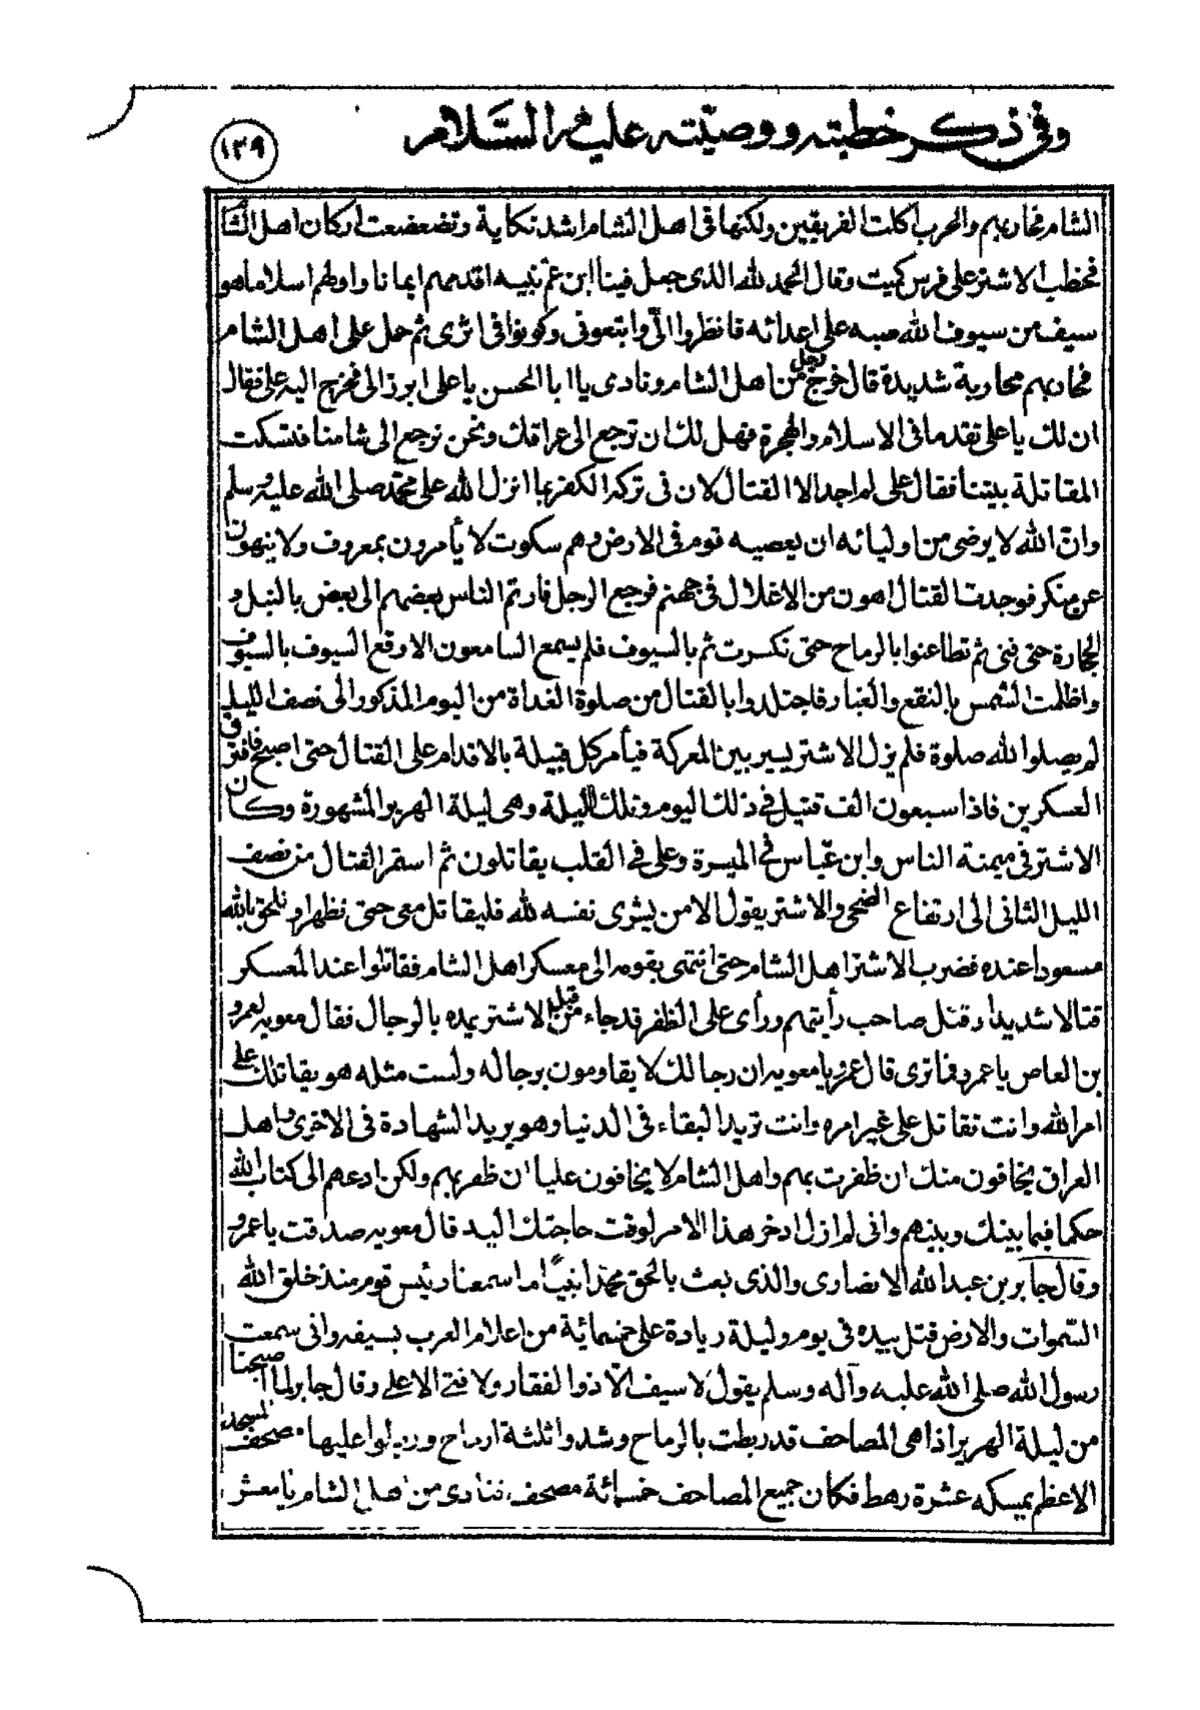 وفي ذكر خطبته ووصيّته عليه السَّلام
١٣٩
الشام فحاربهم والحرب اكلت الفريقين ولكنها في اهل الشام اشد نكاية وتضعضعت اركان اهل الشا
فخطب الاشتر على فرس كميت وقال الحمد لله الذى جعل فينا ابن عم نبيه اقدمهم ايمانا واولهم اسلاما هو
سيف من سيوف الله صبه على اعدائه فانظروا الىّ واتبعونى وكونوا فى اثرى ثم حمل على اهل الشام
فحاربهم محاربة شديدة قال خرج رجل من اهل الشام ونادى يا ابا الحسن يا على ابرز الى فخرج اليه على فقال
ان لك يا على تقدما فى الاسلام والهجرة فهل لك ان ترجع الى عراقك ونحن نرجع الى شامنا فتسكت
المقاتلة بيننا فقال على لم اجد الا القتال لان فى تركه الكفر بما انزل الله على محمّد صلى الله عليه وسلم
وانّ الله لا يرضى من اوليائه ان يعصيه قوم فى الارض وهم سكوت لا يأمرون بمعروف ولا ينهون
عن منكر فوجدت القتال اهون من الاغلال فى جهنم فرجع الرجل فارتم الناس بعضهم الى بعض بالنبل و
الحجارة حتى فنى ثم تطاعنوا بالرماح حتى تكسرت ثم بالسيوف فلم يسمع السامعون الا وقع السيوف بالسيوف
واظلمت الشمس بالنقع والغبار فاجتلدوا بالقتال من صلوة الغداة من اليوم المذكور الى نصف الليل
لم يصلوا لله صلوة فلم يزل الاشتر يسير بين المعركة فيأمر كل قبيلة بالاقدام على القتال حتى اصبح فافترق
العسكرين فاذا سبعون الف قتيل فى ذلك اليوم وتلك الليلة وهى ليلة الهرير المشهورة وكان
الاشتر فى ميمنة الناس وابن عبّاس فى الميسرة وعلى فى القلب يقاتلون ثم استقر القتال من نصف
الليل الثانى الى ارتفاع الضحى والاشتر يقول الا من يشرى نفسه لله فليقاتل معى حتى نظهر او نلحق بالله
مسعودا عنده فضرب الاشتر اهل الشام حتى انتهى بقومه الى معسكر اهل الشام فقاتلوا عند المعسكر
قتالا شديدا وقتل صاحب رأيتهم ورأى على الظفر قد جاء من قبل الاشتر يمده بالرجال فقال معويه لعمرو
بن العاص يا عمرو فما ترى قال عمرو يا معويه ان رجالك لا يقاومون برجاله ولست مثله هو يقاتلك على
امر الله وانت تقاتل على غير امره وانت تريد البقاء فى الدنيا وهو يريد الشهادة فى الاخرى واهل
العراق يخافون منك ان ظفرت بهم واهل الشام لا يخافون عليا ان ظفر بهم ولكن ادعهم الى كتاب الله
حكما فيما بينك وبينهم وانى لم ازل ادخر هذا الامر لوقت حاجتك اليه قال معويه صدقت يا عمرو
وقال جابر بن عبد الله الانصارى والذى بعث بالحق محمّدا نبيّا ما سمعنا رئيس قوم منذ خلق الله
السّموات والارض قتل بيده فى يوم وليلة زيادة على خمسمائية من اعلام العرب بسيفه وانى سمعت
رسول الله صلى الله عليه وآله وسلم يقول لا سيف الّا ذو الفقار ولا فتى الا على وقال جابر لما اصبحنا
من ليلة الهرير اذا هى المصاحف قد ربطت بالرماح وشدوا ثلثة ارماح وربطوا عليها مصحف المسجد
الاعظم يمسكه عشرة رهط فكان جميع المصاحف خمسمائة مصحف فنادى من اهل الشام يا معشر